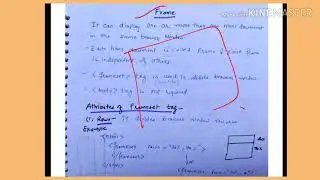 Frame
MADE WITH KINEMASTER
→ It can display one or more than one html document
in the same browser window
→ Each html document is called Frame & each frame
is independent of others.
→ <frameset> tag is used to divide browser window
→ <body> tag is not required
Attributes of frameset tag-
(i) Rows - It divides browser window
Example
<html>
<frameset rows = "30%, 70%">
</frameset>
</html>
30%
70%